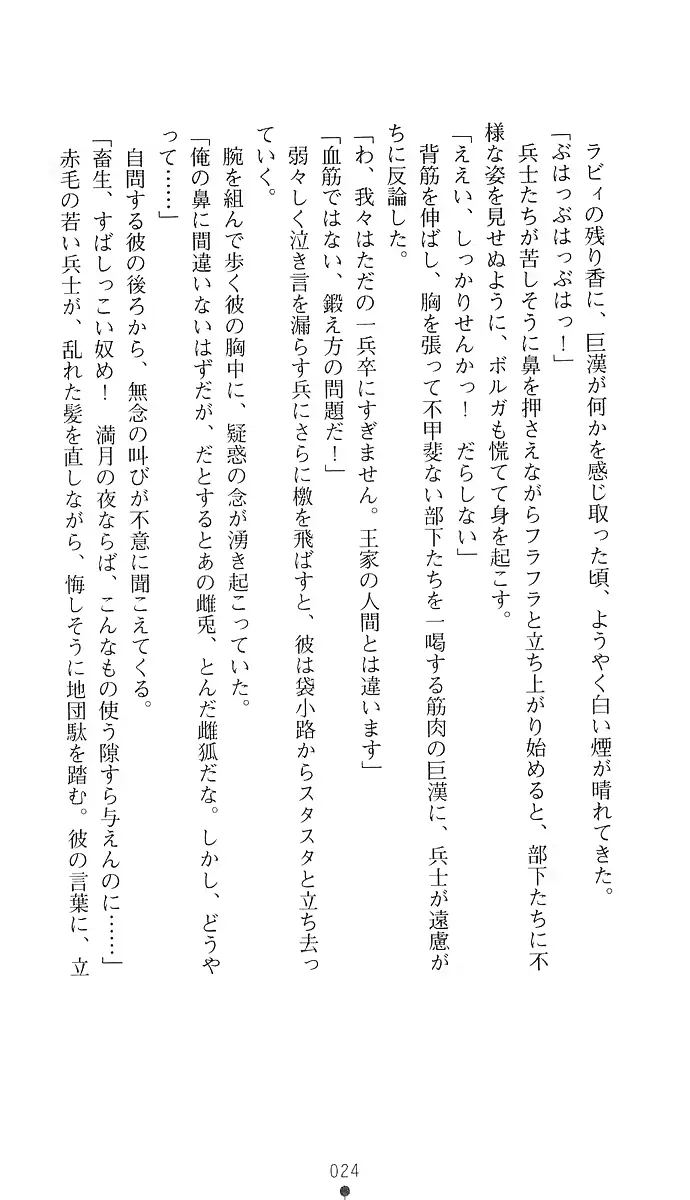 ラビィの残り香に、巨漢が何かを感じ取った頃、ようやく白い煙が晴れてきた。
「ぶはっぶはっぶはっ！」
兵士たちが苦しそうに鼻を押さえながらフラフラと立ち上がり始めると、部下たちに不
様な姿を見せぬように、ボルガも慌てて身を起こす。
「ええい、しっかりせんかっ！　だらしない」
背筋を伸ばし、胸を張って不甲斐ない部下たちを一喝する筋肉の巨漢に、兵士が遠慮が
ちに反論した。
「わ、我々はただの一兵卒にすぎません。王家の人間とは違います」
「血筋ではない、鍛え方の問題だ！」
弱々しく泣き言を漏らす兵にさらに檄を飛ばすと、彼は袋小路からスタスタと立ち去っ
ていく。
腕を組んで歩く彼の胸中に、疑惑の念が湧き起こっていた。
「俺の鼻に間違いないはずだが、だとするとあの雌兎、とんだ雌狐だな。しかし、どうや
って……」
自問する彼の後ろから、無念の叫びが不意に聞こえてくる。
「畜生、すばしっこい奴め！　満月の夜ならば、こんなもの使う隙すら与えんのに……」
赤毛の若い兵士が、乱れた髪を直しながら、悔しそうに地団駄を踏む。彼の言葉に、立
024